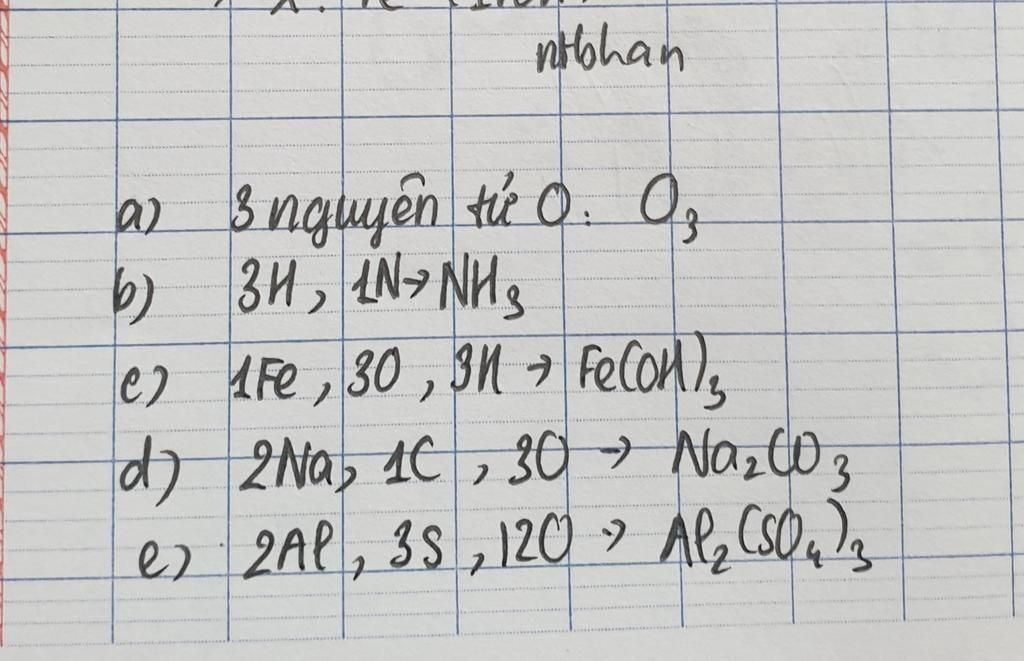 nHóhan
a) 3 nguyên tử O: O₃
b) 3H, 1N → NH₃
c) 1Fe, 3O, 3H → Fe(OH)₃
d) 2Na, 1C, 3O → Na₂CO₃
e) 2Al, 3S, 12O → Al₂(SO₄)₃